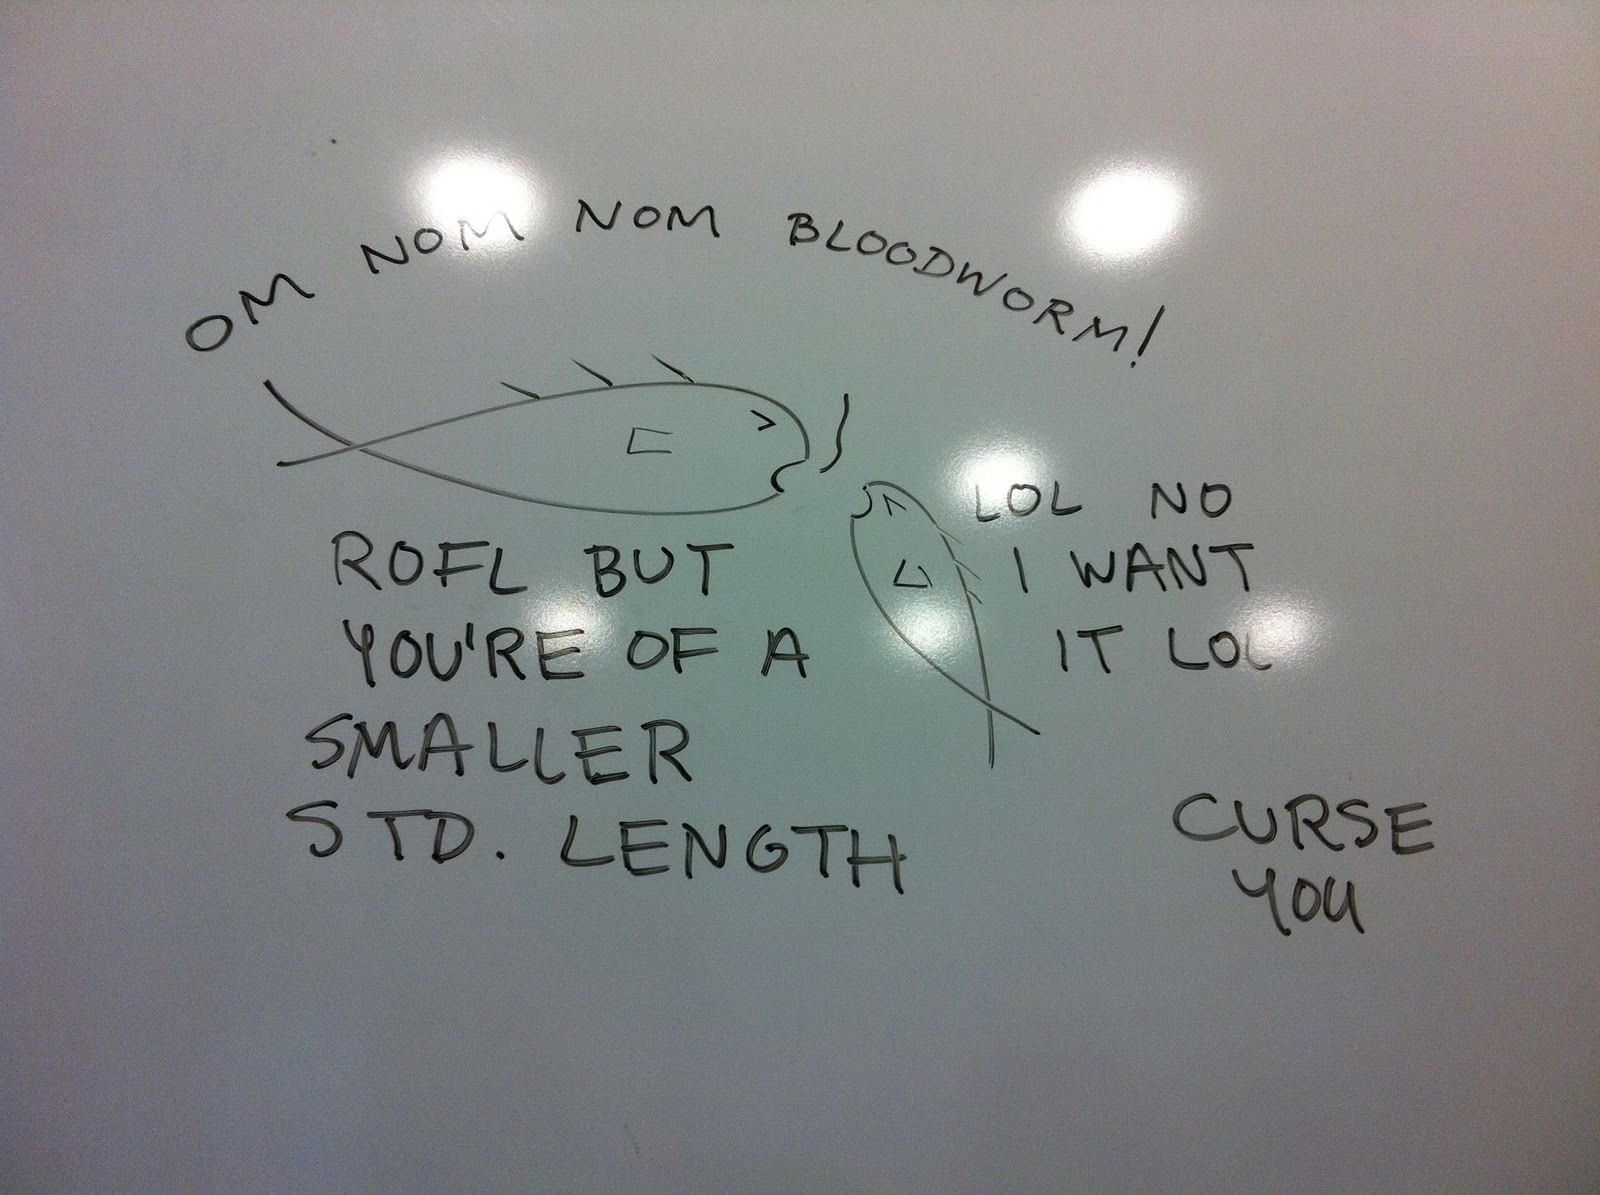 OM NOM NOM BLOODWORM!
LOL NO
I WANT
IT LOL
ROFL BUT
YOU'RE OF A
SMALLER
STD. LENGTH
CURSE
YOU